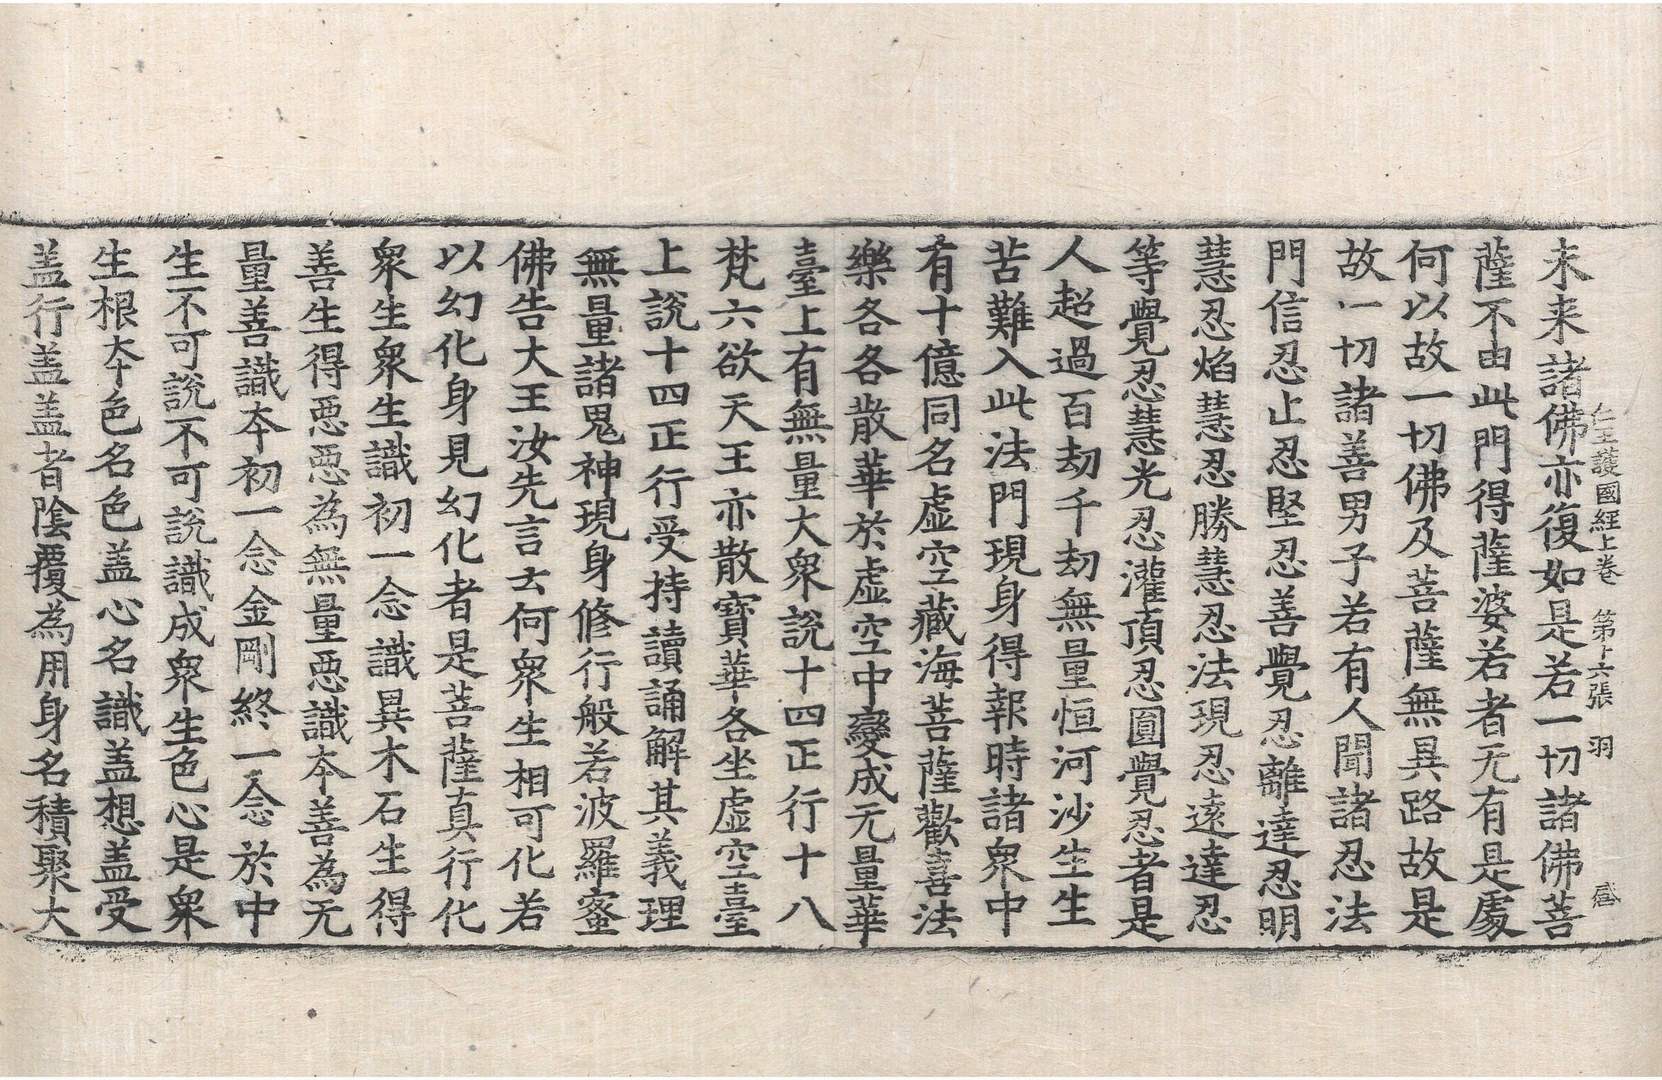 仁王護國經上卷 第十六張 羽
未来諸佛亦復如是若一切諸佛菩
薩不由此門得薩婆若者无有是處
何以故一切佛及菩薩無異路故是
故一切諸善男子若有人聞諸忍法
門信忍止忍堅忍善覺忍離達忍明
慧忍焰慧忍勝慧忍法現忍遠達忍
等覺忍慧光忍灌頂忍圓覺忍者是
人超過百劫千劫無量恒河沙生生
苦難入此法門現身得報時諸衆中
有十億同名虛空藏海菩薩歡喜法
樂各各散華於虛空中變成无量華
臺上有無量大衆說十四正行十八
梵六欲天王亦散寶華各坐虛空臺
上說十四正行受持讀誦解其義理
無量諸鬼神現身修行般若波羅蜜
佛告大王汝先言云何衆生相可化若
以幻化身見幻化者是菩薩真行化
衆生衆生識初一念識異木石生得
善生得惡惡為無量惡識夲善為无
量善識夲初一念金剛終一念於中
生不可說不可說識成衆生色心是衆
生根夲色名色盖心名識盖想盖受
盖行盖盖者陰覆為用身名積聚大